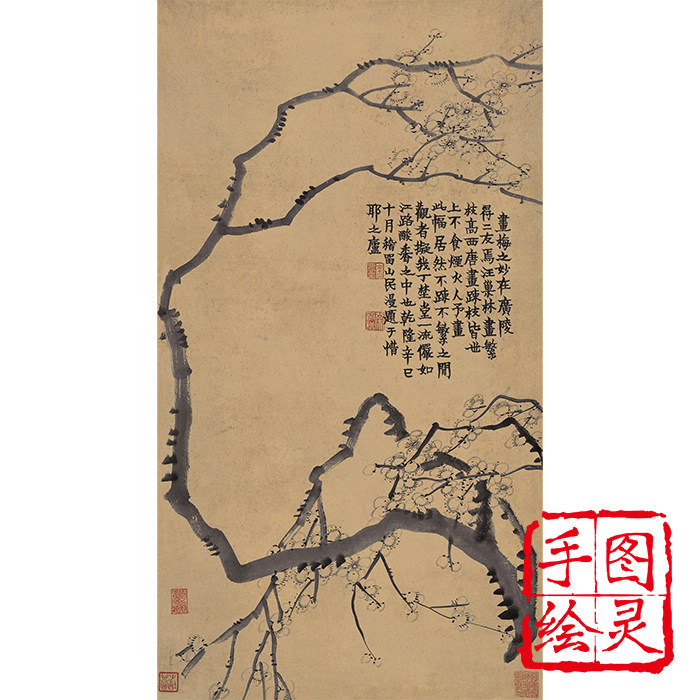 畫梅之妙在廣陵
得二友焉汪巢林畫繁
枝高西唐畫疎枝皆世
上不食煙火人予畫
此幅居然不疎不繁之間
觀者擬我丁埜堂一流儼如
江路酸香之中也乾隆辛巳
十月稽畱山民漫題于惜
耶之廬
图灵
手绘